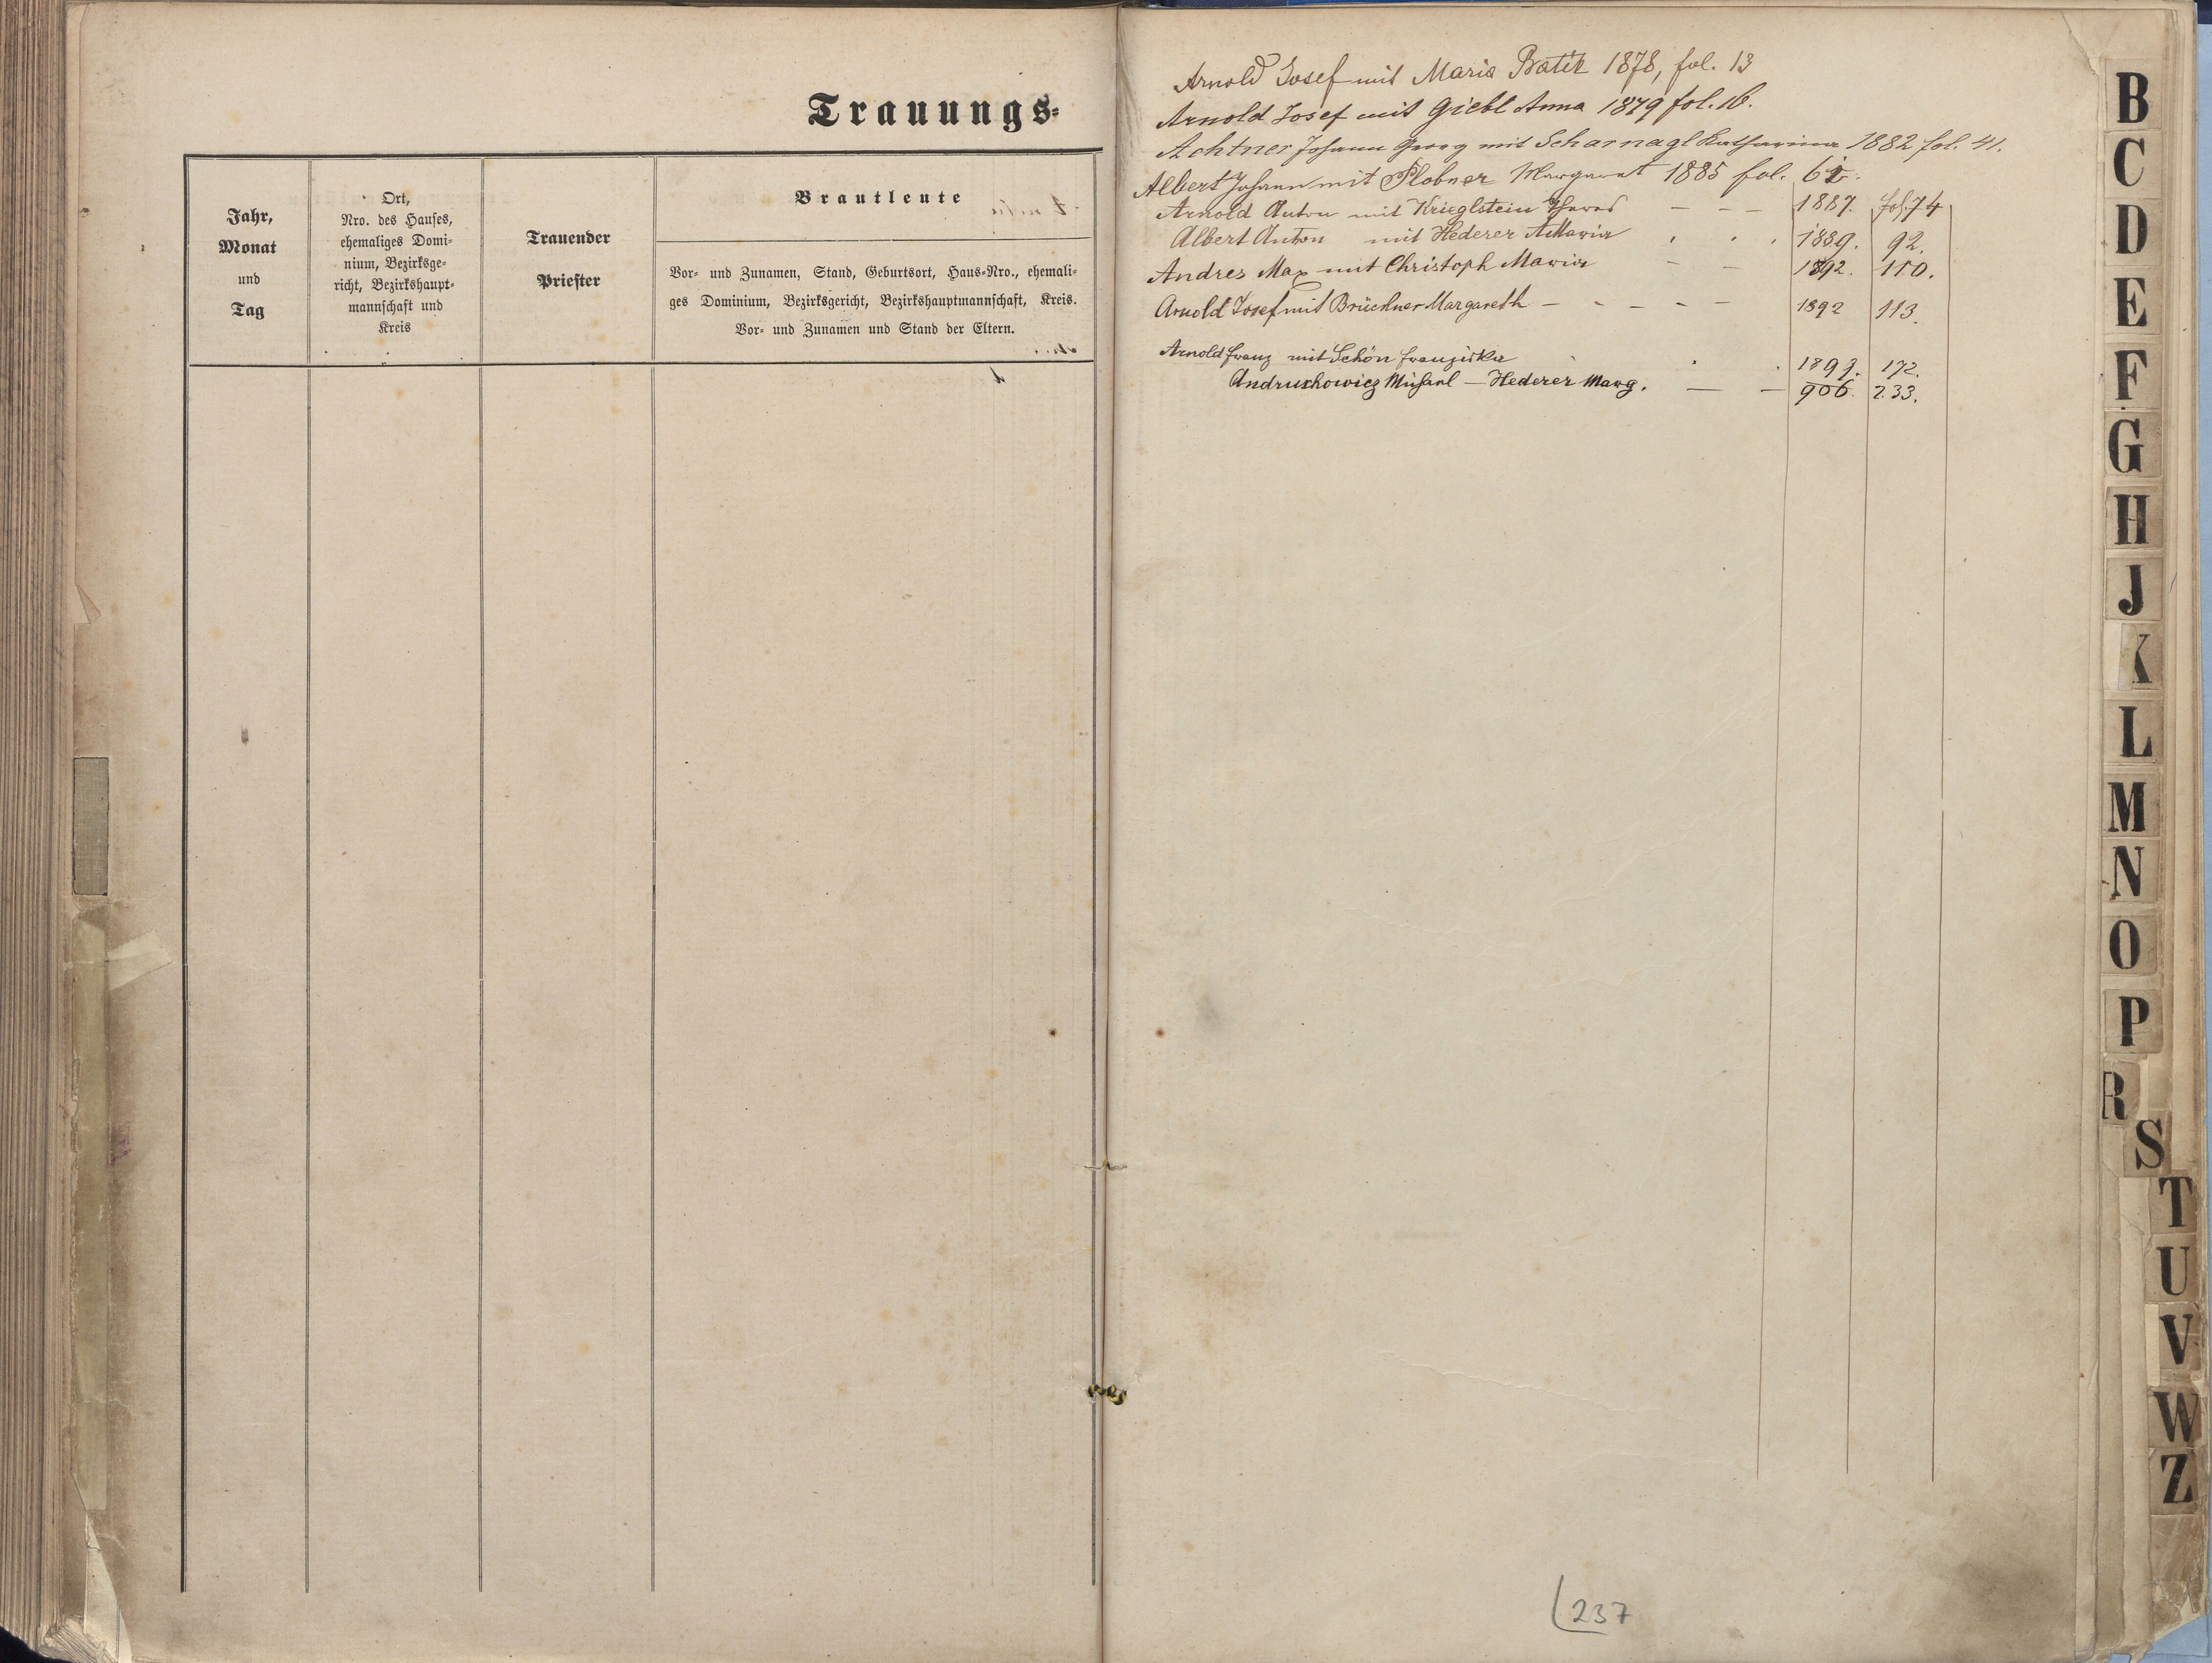 Trauungs-
Jahr,
Monat
und
Tag
Ort,
Nro. des Hauses,
ehemaliges Domi-
nium, Bezirksge-
richt, Bezirkshaupt-
mannschaft und
Kreis
Trauender
Priester
Brautleute
Vor- und Zunamen, Stand, Geburtsort, Haus-Nro., ehemali-
ges Dominium, Bezirksgericht, Bezirkshauptmannschaft, Kreis.
Vor- und Zunamen und Stand der Eltern.
Arnold Josef mit Maria Batik 1878, fol. 13
Arnold Josef mit Giebl Anna 1879 fol. 16.
Achtner Johann Georg mit Scharnagl Katharina 1882 fol. 41.
Albert Johann mit Plobner Margaret 1885 fol.
Arnold Anton mit Krieglstein - - - 1887. fol. 74
Albert Anton mit Hederer 1889. 92.
Andres Max mit Christoph Maria - - 1892. 110.
Arnold Josef mit Brückner Margareth - - - - - 1892 113.
Arnold Franz mit Schön Franziska 172.
Andruchowicz Michael — Hederer Marg. — — 906. 233.
237
B
C
D
E
F
G
H
J
K
L
M
N
O
P
R
S
T
U
V
W
Z